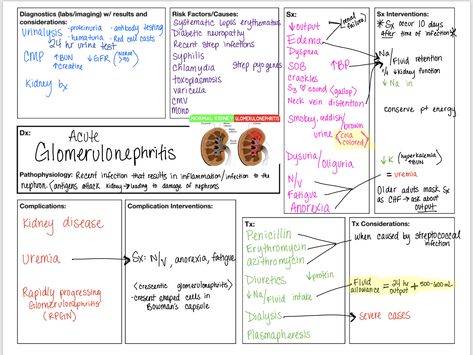 Diagnostics (labs/imaging) w/ results and considerations:
urinalysis
- proteinuria - antibody testing
- hematuria - Red cell casts
24 hr urine test
CMP
↑BUN ↓GFR (normal >90)
↑creatine
Kidney bx
Risk Factors/Causes:
Systematic lupus erythematosus
Diabetic neuropathy
Recent strep infections
Syphilis
Chlamydia
strep pyogenes
toxoplasmosis
varicella
CMV
mono
Dx:
Acute
Glomerulonephritis
NORMAL KIDNEY
GLOMERULONEPHRITIS
Pathophysiology: Recent infection that results in inflammation/infection to the
nephron. (antigens attack kidney → leading to damage of nephrons
Sx:
↓output
Edema
Dyspnea
SOB ↑BP
crackles
S3 sound (gallop)
Neck vein distention
Smokey, reddish/brown
urine (cola colored)
Dysuria/Oliguria
N/V
Fatigue
Anorexia
Sx Interventions:
*Sx occur 10 days
after time of infection*
Na/Fluid retention
↓ kidney function
↓Na in
conserve pt energy
↓K (hyperkalemia) ↑BUN
= uremia
Older adults mask Sx
as CHF → ask about
output
Complications:
Kidney disease
Uremia
Rapidly progressing
Glomerulonephritis
(RPGN)
Complication Interventions:
Sx: N/V, anorexia, fatigue
(crescentic glomerulonephritis)
- present shaped cells in
Bowman's capsule
Tx:
Penicillin
Erythromycin
azithromycin
Diuretics ↓protein
↓Na/Fluid intake
Dialysis
Plasmapheresis
Tx Considerations:
when caused by streptococcal
infection
Fluid allowance = 24 hr output + 500-600mL
severe cases